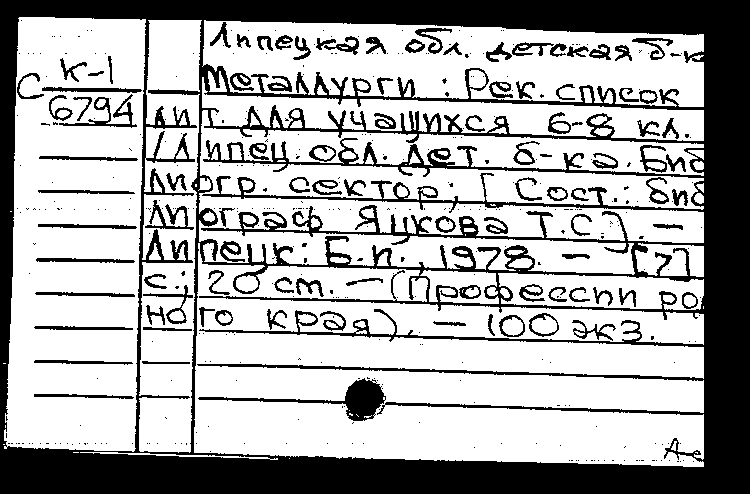 Липецкая обл. детская б-к
К-1
Металлурги : Рек. список
С 6794
лит. для учащихся 6-8 кл.
/ Липец. обл. дет. б-ка. Биб
лиогр. сектор; [Сост.: биб
лиограф Яцкова Т.С.]. —
Липецк: Б.и., 1978. — [7]
с.; 20 см. — (Профессии род
ного края). — 100 экз.